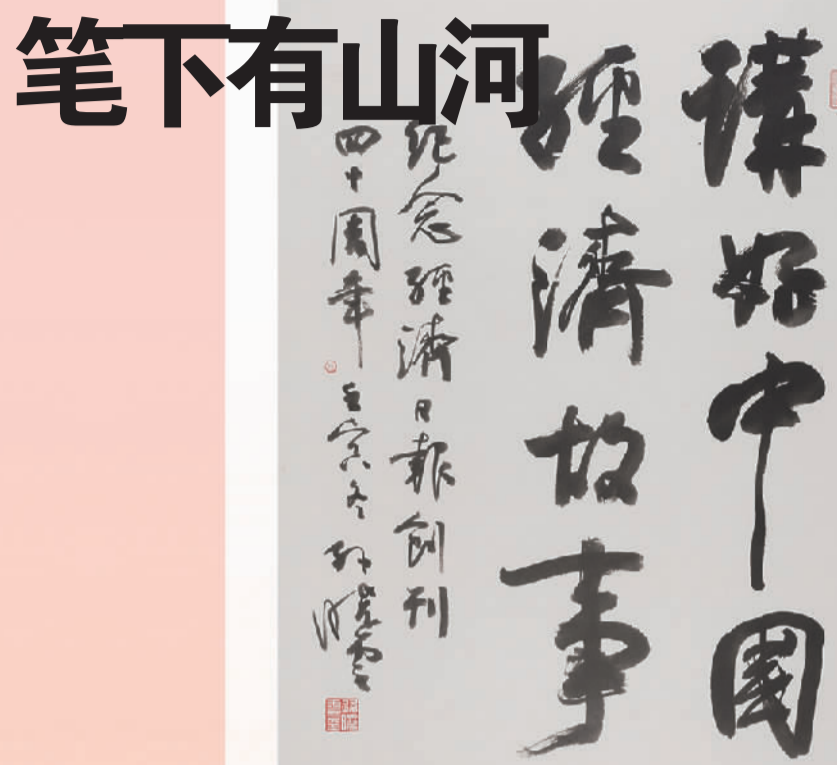 笔下有山河
講好中國
經濟故事
紀念經濟日報創刊
四十周年 壬寅冬 孙曉雲